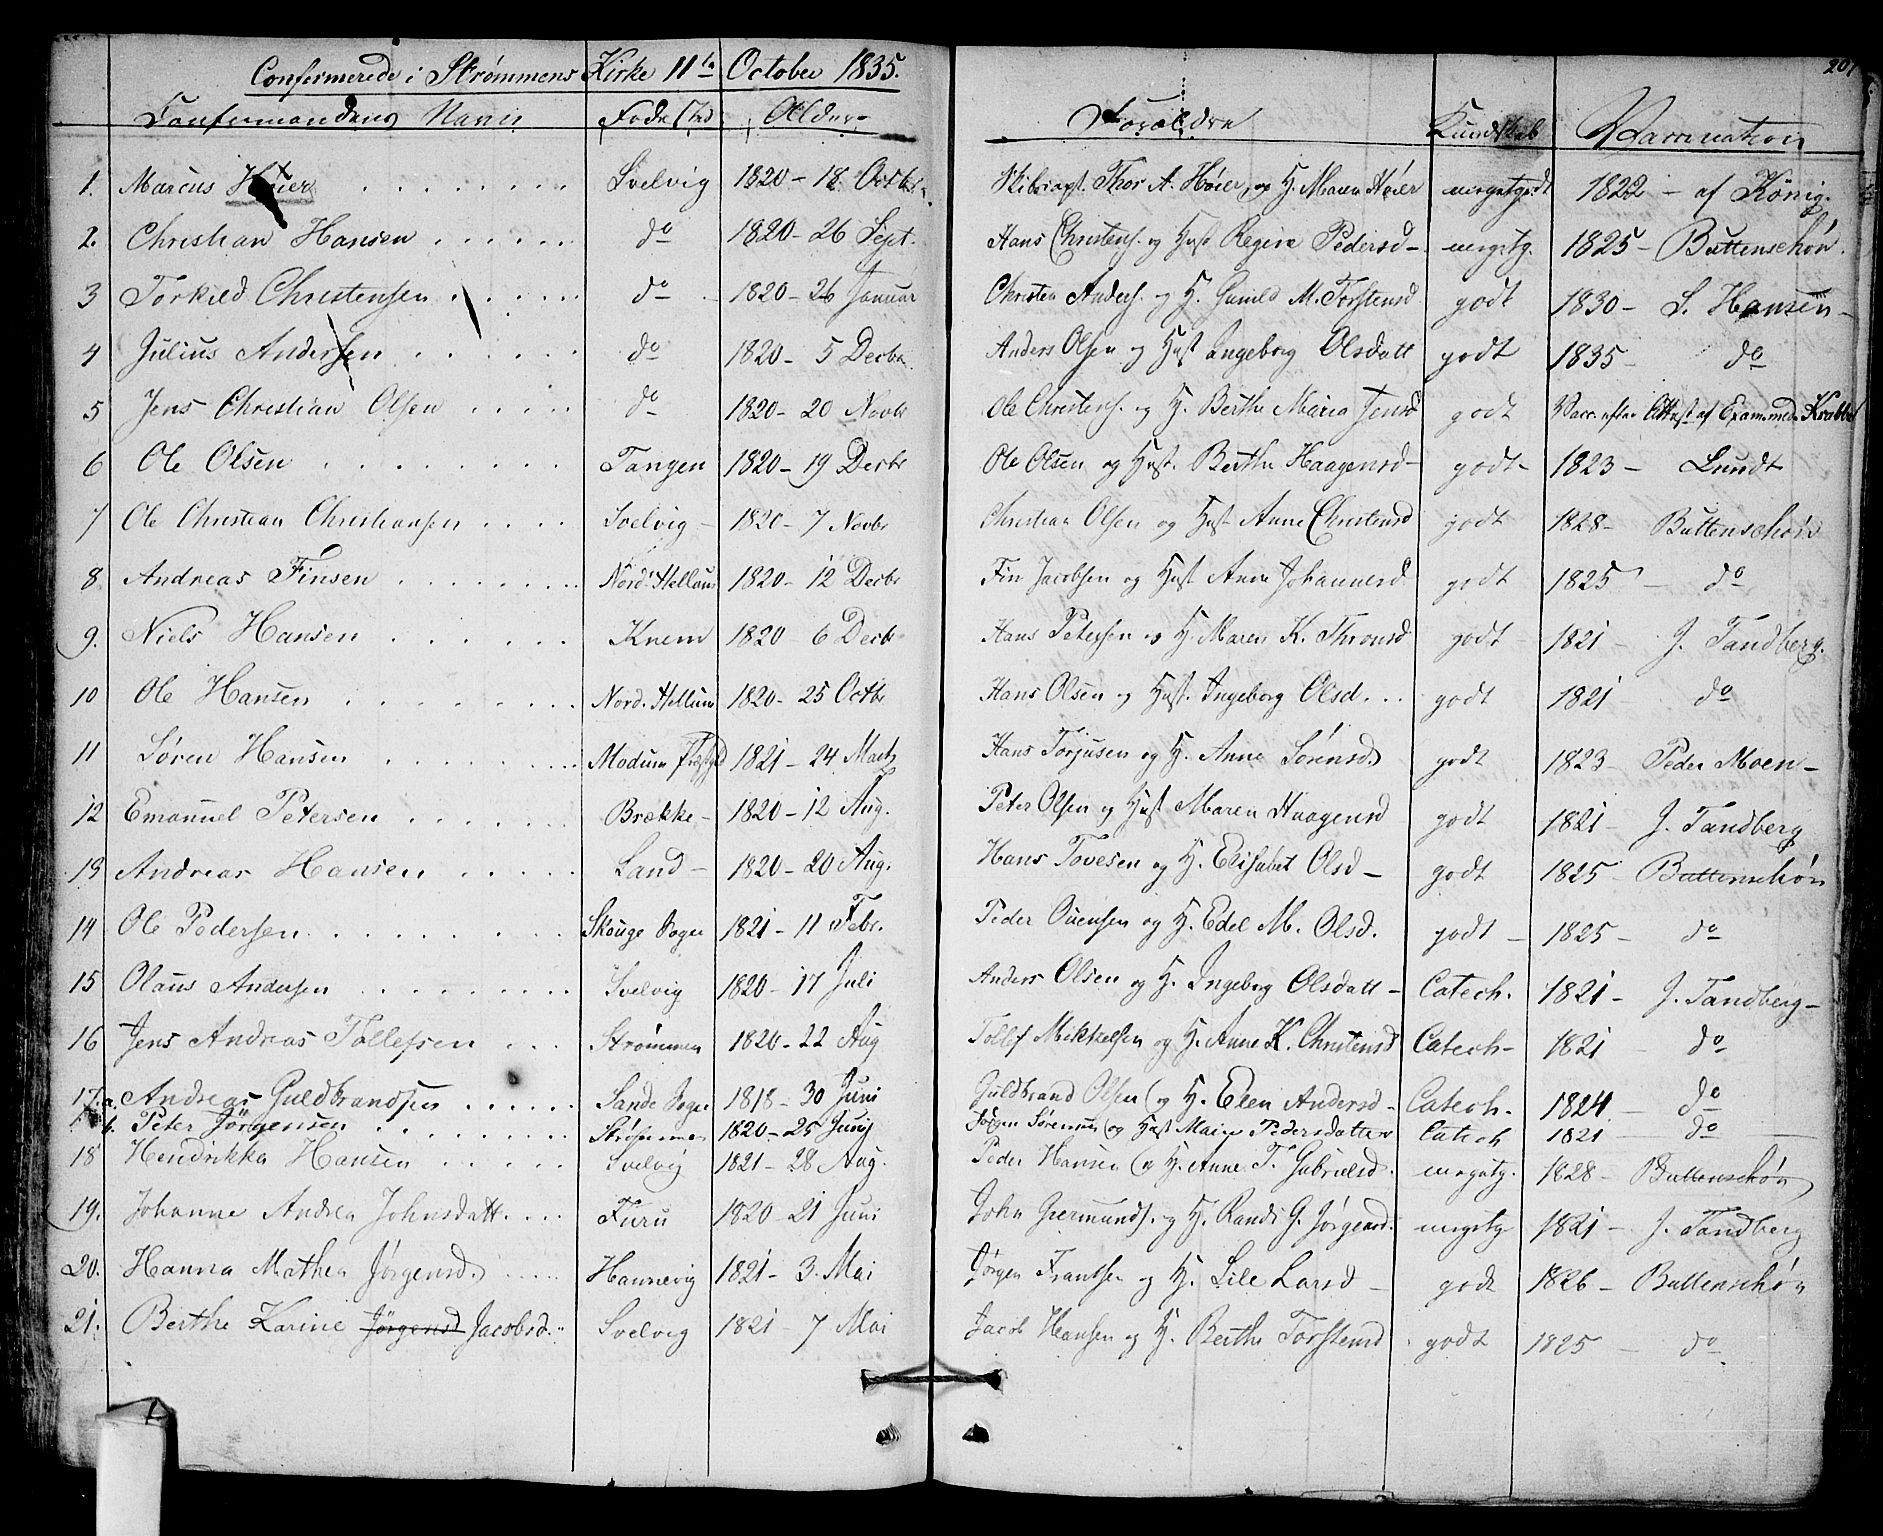 Confermerede i Strømmens Kirke 11te October 1835.
207
Confermandens Navn Fødested Alder Forældre Kundskab Vaccination
1. Marcus Høier Svelvig 1820 - 18 Octbr. Thor A. Høier, og H. Maren Høier megetgodt 1822 - af König.
2. Christian Hansen do 1820 - 26 Sept. Hans Christens. og Hust Regine Pedersd - megetg. 1825 - Buttenschøn.
3 Torkild Christensen do 1820 - 26 Januar Christen Anders. og H. Gunild M. Torstensd godt 1830 - S. Hansen -
4 Julius Andersen do 1820 - 5 Decbr. Anders Olsen og Hust Ingeborg Olsdatt godt 1835 - do
5 Jens Christian Olsen do 1820 - 20 Novbr Ole Christens. og H. Berthe Maria Jensd godt Vacc. efter Attest af Examined. Krabbe
6 Ole Olsen Tangen 1820 - 19 Decbr Ole Olsen og Hust. Berthe Haagensd - godt - 1823 - Lundt
7 Ole Christian Christiansen Svelvig - 1820 - 7 Novbr Christian Olsen og Hust Anne Christensd godt 1828 - Buttenschøn
8 Andreas Finsen Nord. Hellum 1820 - 12 Decbr Fin Jacobsen og Hust Anne Johannesd godt 1825 - do
9. Niels Hansen Knem 1820 - 6 Decbr Hans Petersen og H. Maren K. Thronsd godt 1821 - J. Tandberg.
10 Ole Hansen Nord. Hellum 1820 - 25 Octbr Hans Olsen og Hust. Ingeborg Olsd. godt 1821 - do
11 Søren Hansen Modum Præstgd 1821 - 24 Marts Hans Torjusen og H. Anne Sørensd godt 1823 - Peder Moen -
12 Emanuel Petersen Brække - 1820 - 12 Aug. Peter Olsen og Hust Maren Haagensd godt 1821 - J. Tandberg
13 Andreas Hansen Sand - 1820 - 20 Aug. Hans Tovesen og H. Elisabet Olsd - godt 1825 - Buttenschøn
14 Ole Pedersen Skouge Sogn 1821 - 11 Febr. Peder Ouensen og H. Edel M. Olsd. godt - 1825 - do
15 Olaus Andersen Svelvig 1820 - 17 Juli Anders Olsen og H. Ingeborg Olsdatt - Catech. 1821 - J. Tandberg -
16 Jens Andreas Tollefsen Strømmen 1820 - 22 Aug Tollef Mikkelsen og H. Anne K. Christensd Catech - 1821 - do
17.a. Andreas Guldbrandsen Sande Sogn 1818 - 30 Juni Guldbrand Olsen og H. Elen Andersd - Catech. 1824 - do
b. Peter Jörgensen Strømmen 1820 - 25 Junj Jörgen Sørensen og Hust Maren Pedersdatter Catech 1821 - do
18 Hendrikka Hansen Svelvig 1821 - 28 Aug. Peder Hansen og H. Anne T. Gabrielsd. megetg. 1828 - Buttenschøn
19. Johanne Andrea Johnsdatt. Furu 1820 - 21 Juni John Giermunds. og H. Randi G. Jørgensd. megetg 1821 - J. Tandberg
20. Hanna Mathea Jørgensd. Hannevig 1821 - 3. Mai Jørgen Frantsen og H. Sile Larsd - godt 1826 - Buttenschøn
21. Berthe Karine Jörgensd Jacobsd. Svelvig 1821 - 7 Mai Jacob Hansen og H. Berthe Torstensd godt 1825 - do